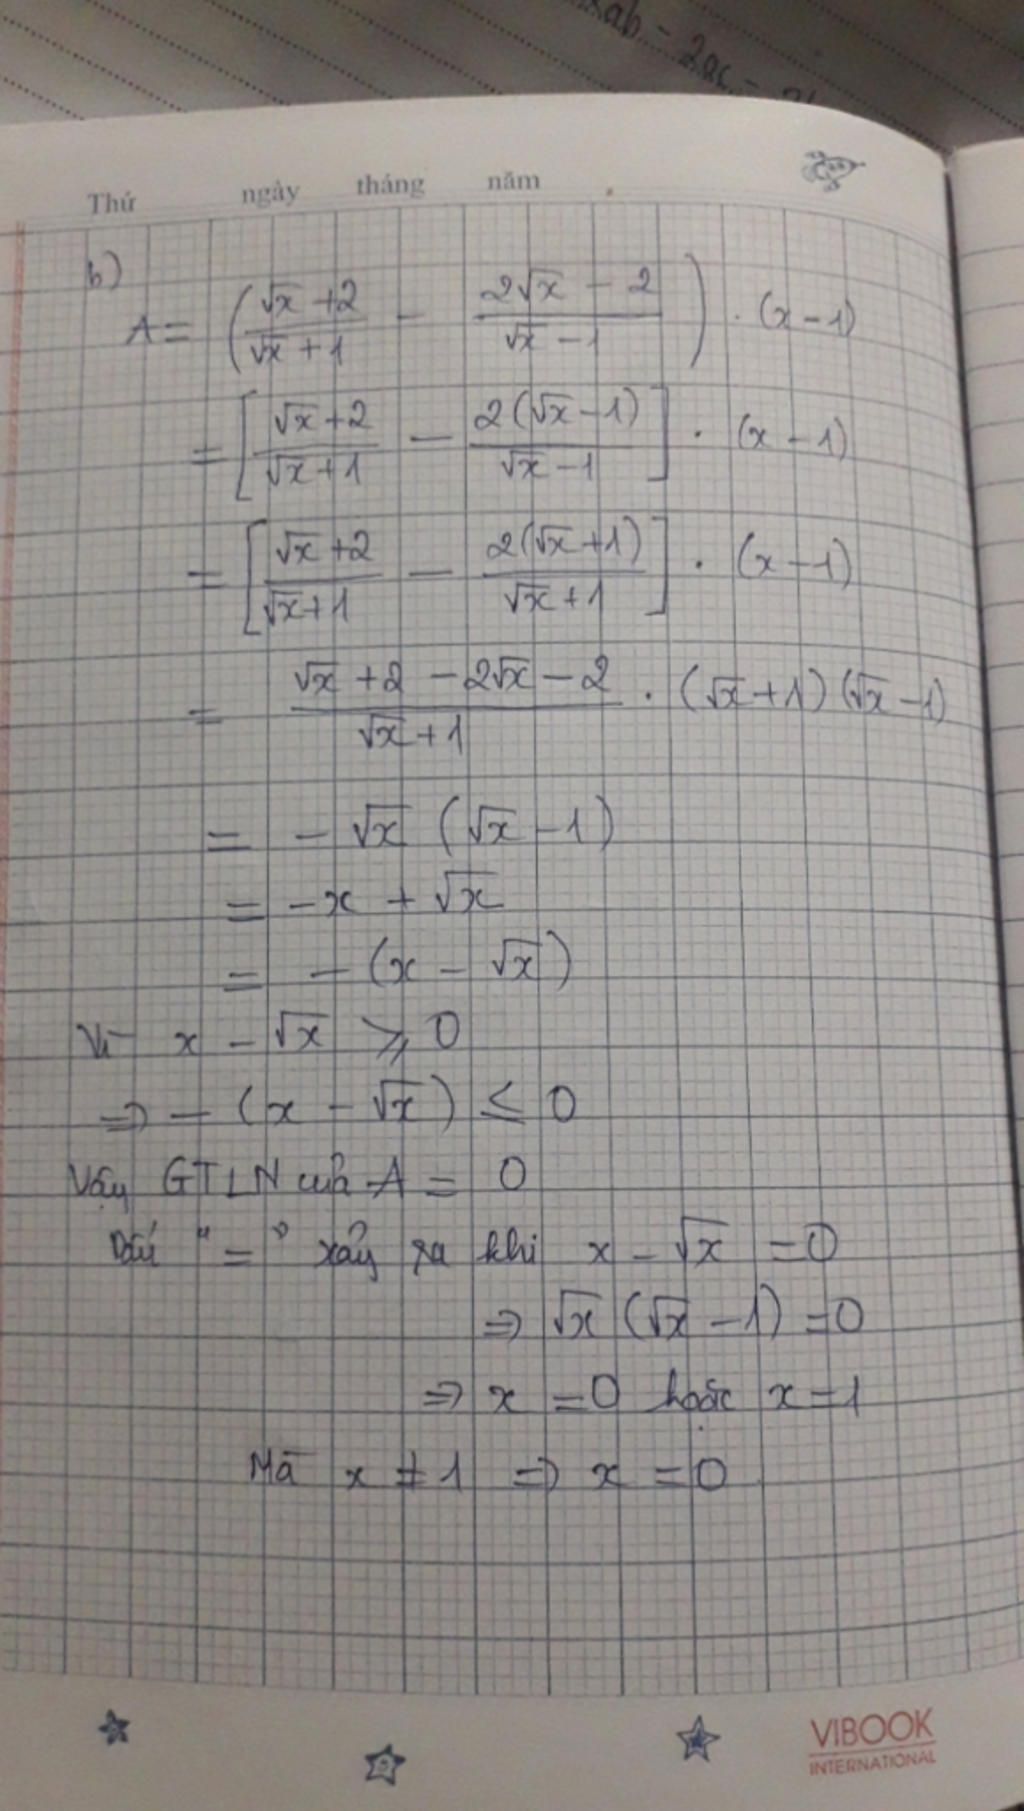 2ab - 2ac -
Thứ ngày tháng năm
b)
A = ( (√x + 2)/(√x + 1) - (2√x - 2)/(√x - 1) ) . (x - 1)
= [ (√x + 2)/(√x + 1) - 2(√x - 1)/(√x - 1) ] . (x - 1)
= [ (√x + 2)/(√x + 1) - 2(√x + 1)/(√x + 1) ] . (x - 1)
= (√x + 2 - 2√x - 2)/(√x + 1) . (√x + 1)(√x - 1)
= - √x (√x - 1)
= -x + √x
= - (x - √x)
Vì x - √x ⩾ 0
=> - (x - √x) ≤ 0
Vậy GTLN của A = 0
Dấu "=" xảy ra khi x - √x = 0
=> √x (√x - 1) = 0
=> x = 0 hoặc x = 1
Mà x ≠ 1 => x = 0
VIBOOK
INTERNATIONAL